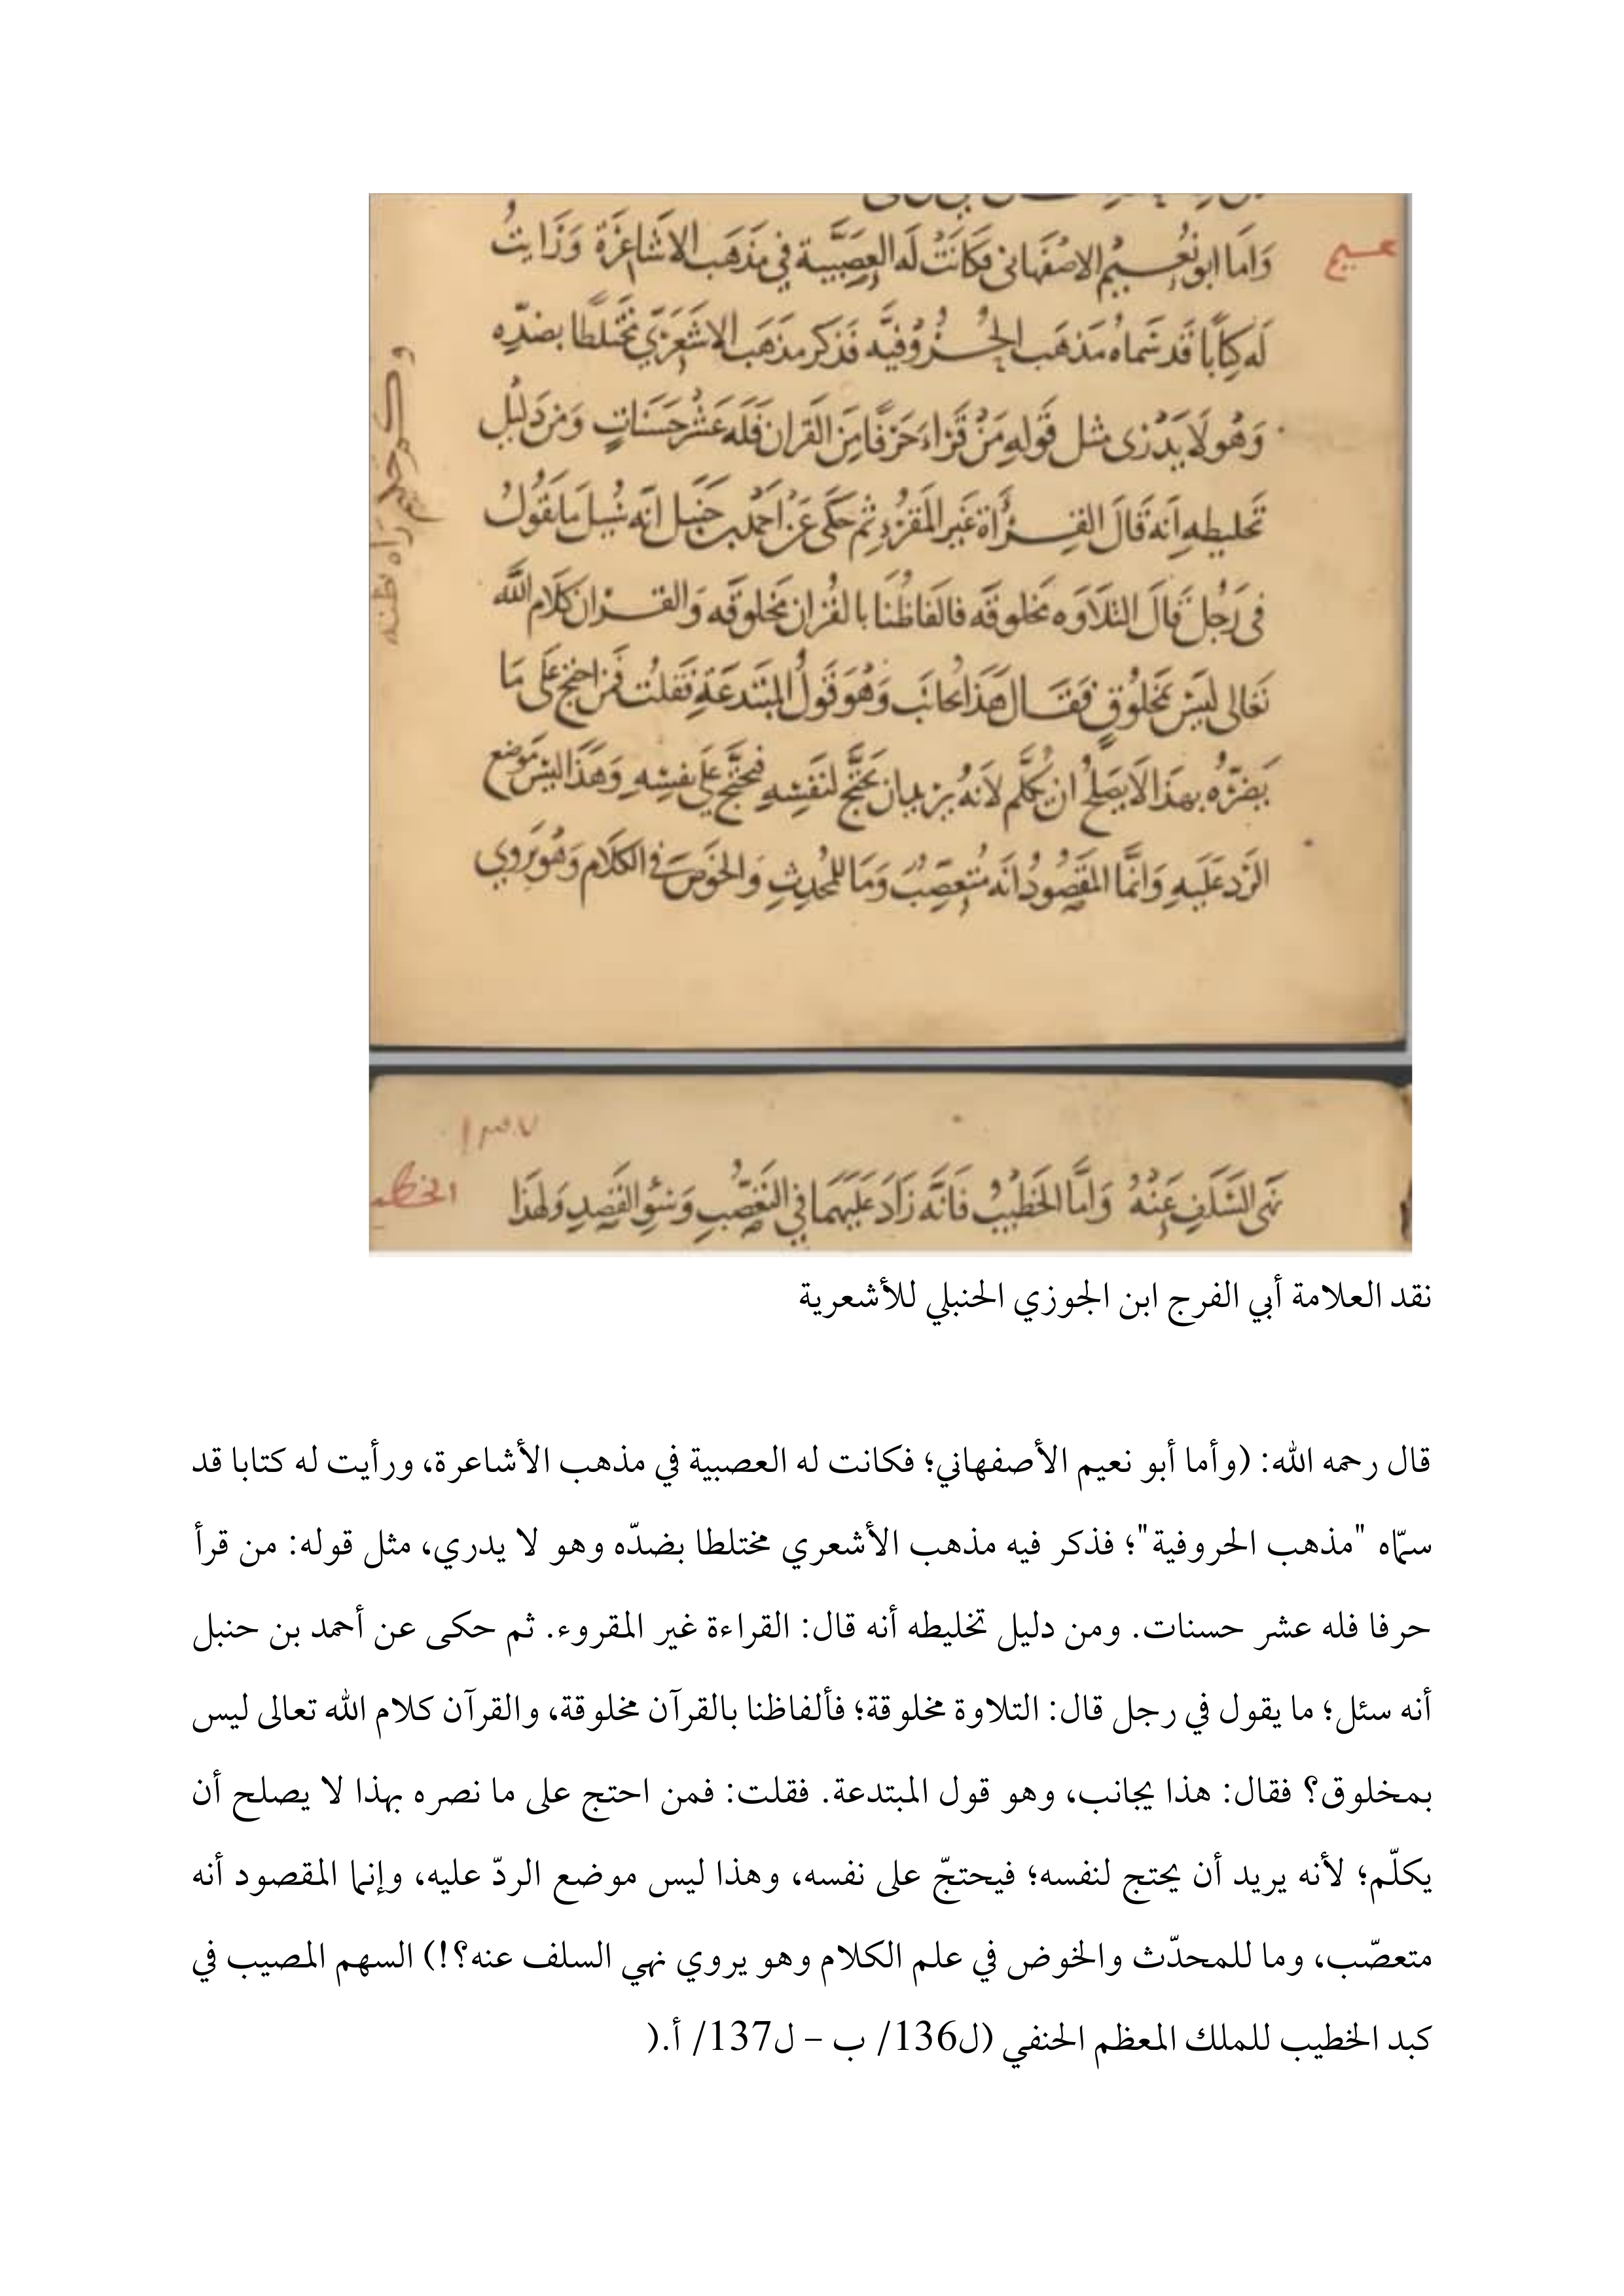 وَاَما ابو نُعيم الاصْفَهانى فكَانَتْ لَه العصَبيّة في مَذهَب الاشَاعرَة وَرَايتُ
لَه كتَابًا قَد سَماهُ مَذهَب الحُروُفيَّه فَذكر مَذهَب الاشعَري مختَلطًا بضدّه
وَهُو لَا يَدْرى مثل قَولهِ مَنْ قَراءَ حَرفًا مِنَ القرآن فَلَه عَشْر حَسَنَاتٍ وَمن دَليْل
تخليطه اَنه قَالَ القِراَة غَير المَقرُو ثم حَكى عَن احمد بن حَنبَل انَه سُيل مَا يقُولُ
فى رَجُل قَالَ التلَاوَه مَخلوقَه فالفاظُنَا بالقُران مخلوقَه وَالقران كَلَام الله
تَعَالى ليسَ بمَخلُوقٍ فقَال هَذا يجانب وَهُوَ قولُ المبتَدعَةِ فَقلتُ فمَن احتج عَلى مَا
بهَذا لَا يَصلحُ ان يُكلَّم لانَهُ يريد ان يَحتَجَّ لنَفسهِ فيحتَجّ عَلى نفسِهِ وَهَذا ليس مَوضع
الرَد عَليهِ وَانَّما المقَصُودُ انَه مُتعصّبٌ وَمَا للمُحدثِ وَالخَوض فى الكلَام وَهُو يَروي
١٣٧
نَهى السَّلَفِ عَنْهُ وَامَّا الخَطيبُ فَانَّه زَادَ عَليهمَا في التَعَصّب وَسُؤ القَصدِ وَلهذا
الخطيب
نقد العلامة أبي الفرج ابن الجوزي الحنبلي للأشعرية
قال رحمه الله: (وأما أبو نعيم الأصفهاني؛ فكانت له العصبية في مذهب الأشاعرة، ورأيت له كتابا قد
سمّاه "مذهب الحروفية"؛ فذكر فيه مذهب الأشعري مختلطا بضدّه وهو لا يدري، مثل قوله: من قرأ
حرفا فله عشر حسنات. ومن دليل تخليطه أنه قال: القراءة غير المقروء. ثم حكى عن أحمد بن حنبل
أنه سئل؛ ما يقول في رجل قال: التلاوة مخلوقة؛ فألفاظنا بالقرآن مخلوقة، والقرآن كلام الله تعالى ليس
بمخلوق؟ فقال: هذا يجانب، وهو قول المبتدعة. فقلت: فمن احتج على ما نصره بهذا لا يصلح أن
يكلّم؛ لأنه يريد أن يحتج لنفسه؛ فيحتجّ على نفسه، وهذا ليس موضع الردّ عليه، وإنما المقصود أنه
متعصّب، وما للمحدّث والخوض في علم الكلام وهو يروي نهي السلف عنه؟!) السهم المصيب في
كبد الخطيب للملك المعظم الحنفي (ل136/ ب – ل137/ أ.(